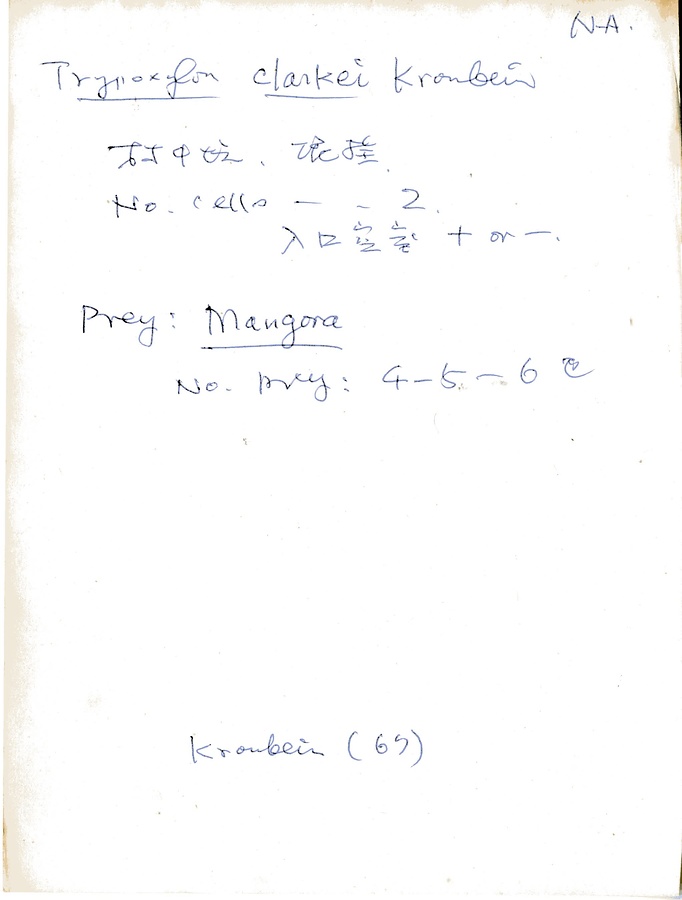 N.A.
Trypoxylon clarkei Krombein
材中坑、
No. cells — - 2.
入口空室 + or —.
Prey: Mangora
No. prey: 4-5-6
Krombein (67)